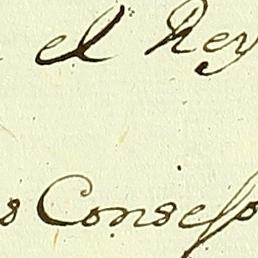 el Rey
s Consejo